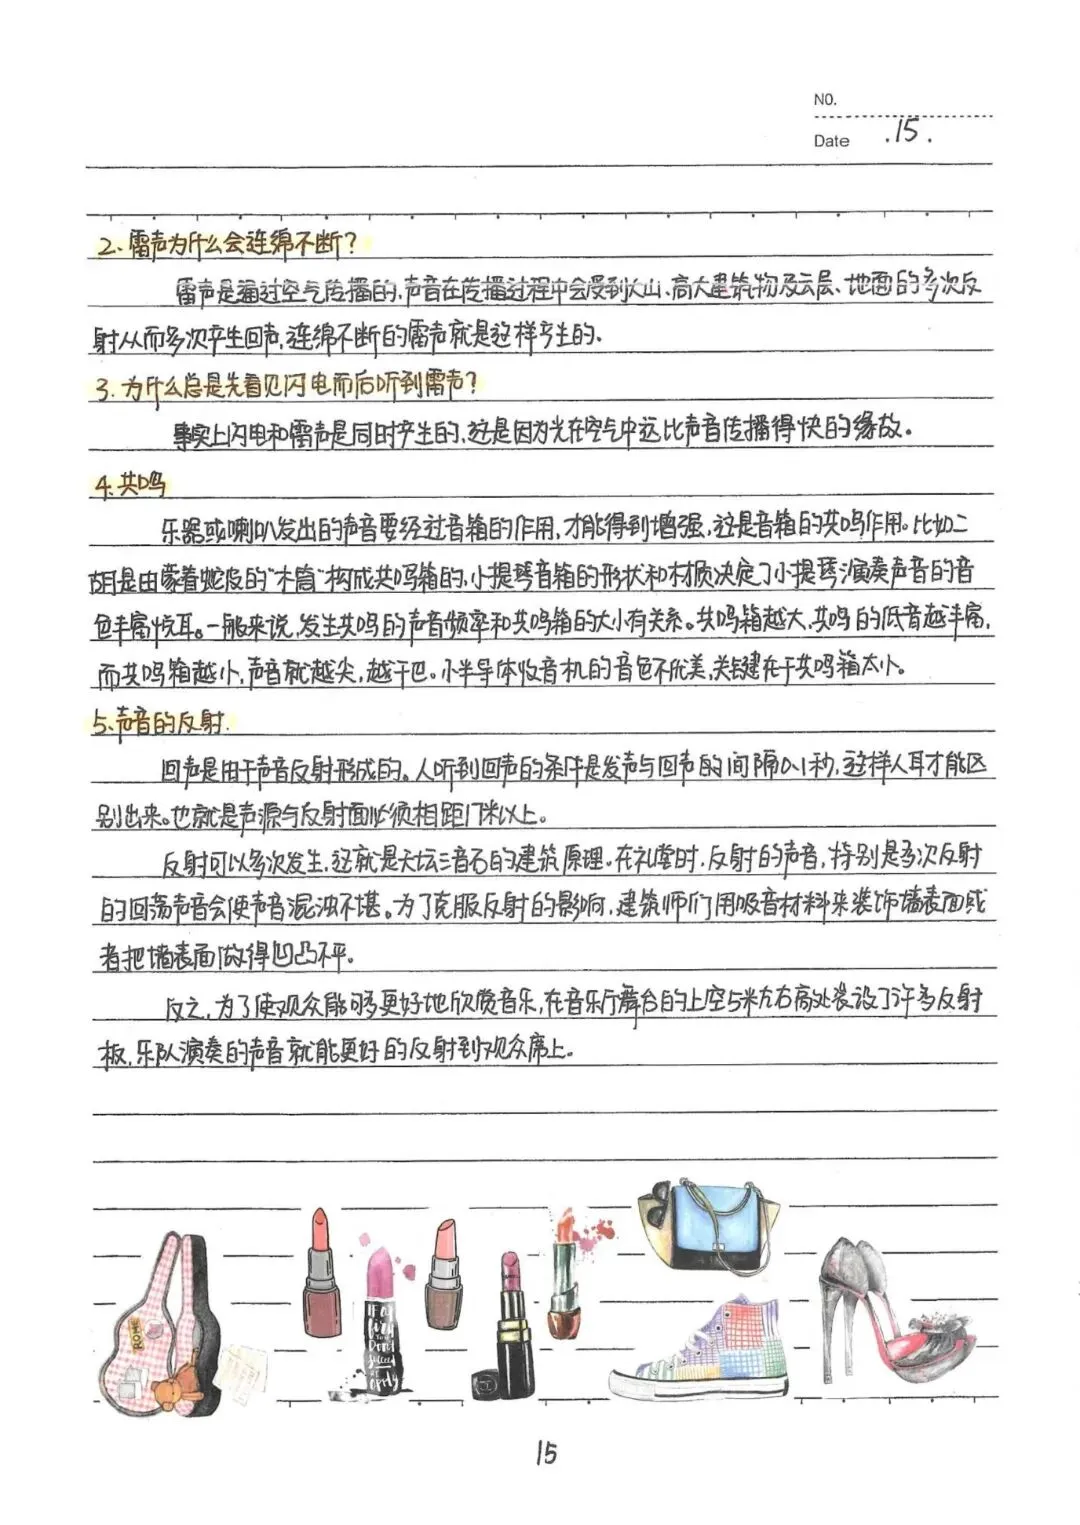 NO.
Date .15.
2、雷声为什么会连绵不断?
雷声是通过空气传播的,声音在传播过程中会受到大山、高大建筑物及云层、地面的多次反
射从而多次产生回声,连绵不断的雷声就是这样产生的、
3、为什么总是先看见闪电而后听到雷声?
事实上闪电和雷声是同时产生的,这是因为光在空气中远比声音传播得快的缘故。
4、共鸣
乐器或喇叭发出的声音要经过音箱的作用,才能得到增强,这是音箱的共鸣作用。比如二
胡是由蒙着蛇皮的“木筒”构成共鸣箱的,小提琴音箱的形状和材质决定了小提琴演奏声音的音
色丰富悦耳。一般来说,发生共鸣的声音频率和共鸣箱的大小有关系。共鸣箱越大,共鸣的低音越丰富,
而共鸣箱越小,声音就越尖,越干巴。小半导体收音机的音色不优美,关键在于共鸣箱太小。
5、声音的反射.
回声是由于声音反射形成的。人听到回声的条件是发声与回声的间隔0.1秒,这样人耳才能区
别出来。也就是声源与反射面必须相距17米以上。
反射可以多次发生,这就是天坛三音石的建筑原理。在礼堂时,反射的声音,特别是多次反射
的回荡声音会使声音混浊不堪。为了克服反射的影响,建筑师们用吸音材料来装饰墙表面或
者把墙表面做得凹凸不平。
反之,为了使观众能够更好地欣赏音乐,在音乐厅舞台的上空5米左右高处装设了许多反射
板,乐队演奏的声音就能更好的反射到观众席上。
ROME
15